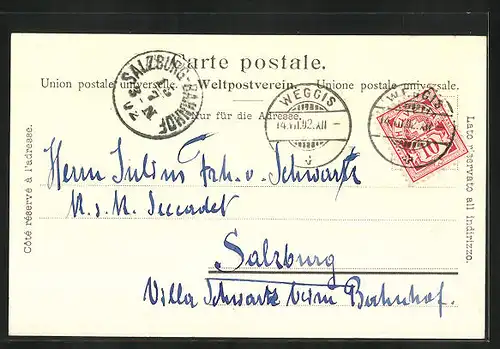 Carte postale.
Union postale universelle. Weltpostverein. Unione postale universale.
Nur für die Adresse.
Côté réservé à l'adresse.
Lato riservato all indirizzo.
SALZBURG-BAHNHOF
WEGGIS
14.VII.92.XII
WEGGIS
Herrn Julius Frh. v. Schwartz
K. u. K. Seecadet
Salzburg
Villa Schwartz beim Bahnhof.